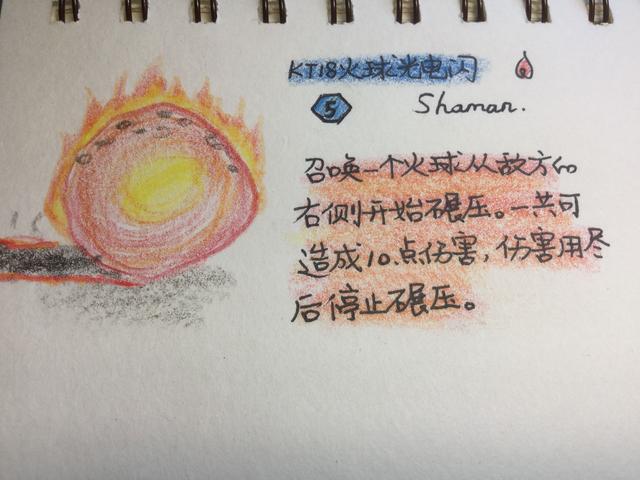 KT18火球光电闪
5
Shaman.
召唤一个火球从敌方的
右侧开始碾压。一共可
造成10点伤害,伤害用尽
后停止碾压。